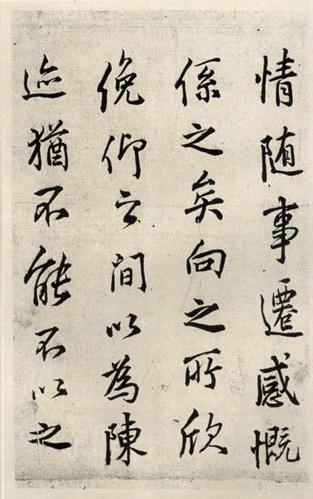 情随事遷感慨
係之矣向之所欣
俛仰之間以為陳
迹猶不能不以之